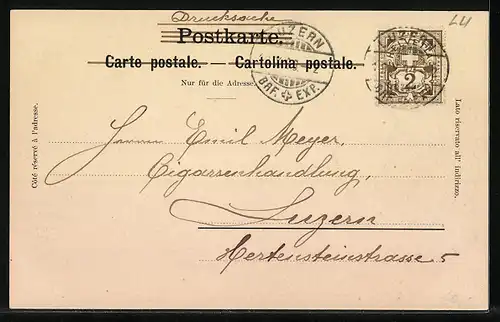 Drucksache
Postkarte.
Carte postale. — Cartolina postale.
Nur für die Adresse.
LUZERN
BRF. EXP.
LUZERN
2
LU
Côté réservé à l'adresse.
Lato riservato all' indirizzo.
Herrn Emil Meyer,
Cigarrenhandlung,
Luzern
Hertensteinstrasse 5